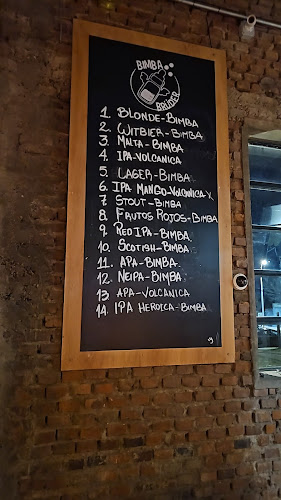 BIMBA
BRÜDER
1. BLONDE-BIMBA
2. WITBIER-BIMBA
3. MALTA-BIMBA
4. IPA-VOLCANICA
5. LAGER-BIMBA
6. IPA MANGO-VOLCANICA-X
7 STOUT-BIMBA
8 FRUTOS ROJOS-BIMBA
9. RED IPA-BIMBA
10. SCOTISH-BIMBA
11. APA-BIMBA
12. NEIPA-BIMBA
13. APA-VOLCANICA
14. IPA HEROICA-BIMBA